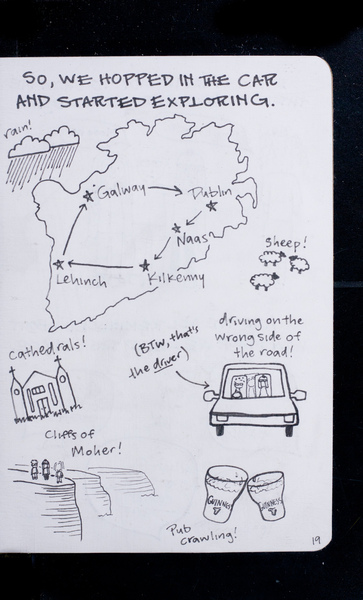 SO, WE HOPPED IN THE CAR
AND STARTED EXPLORING.
rain!
Galway
Dublin
Naas
Lehinch
Kilkenny
Sheep!
Cathedrals!
(BTW, that's
the driver)
driving on the
wrong side of
the road!
Cliffs of
Moher!
GUINNESS
GUINNESS
Pub
crawling!
19